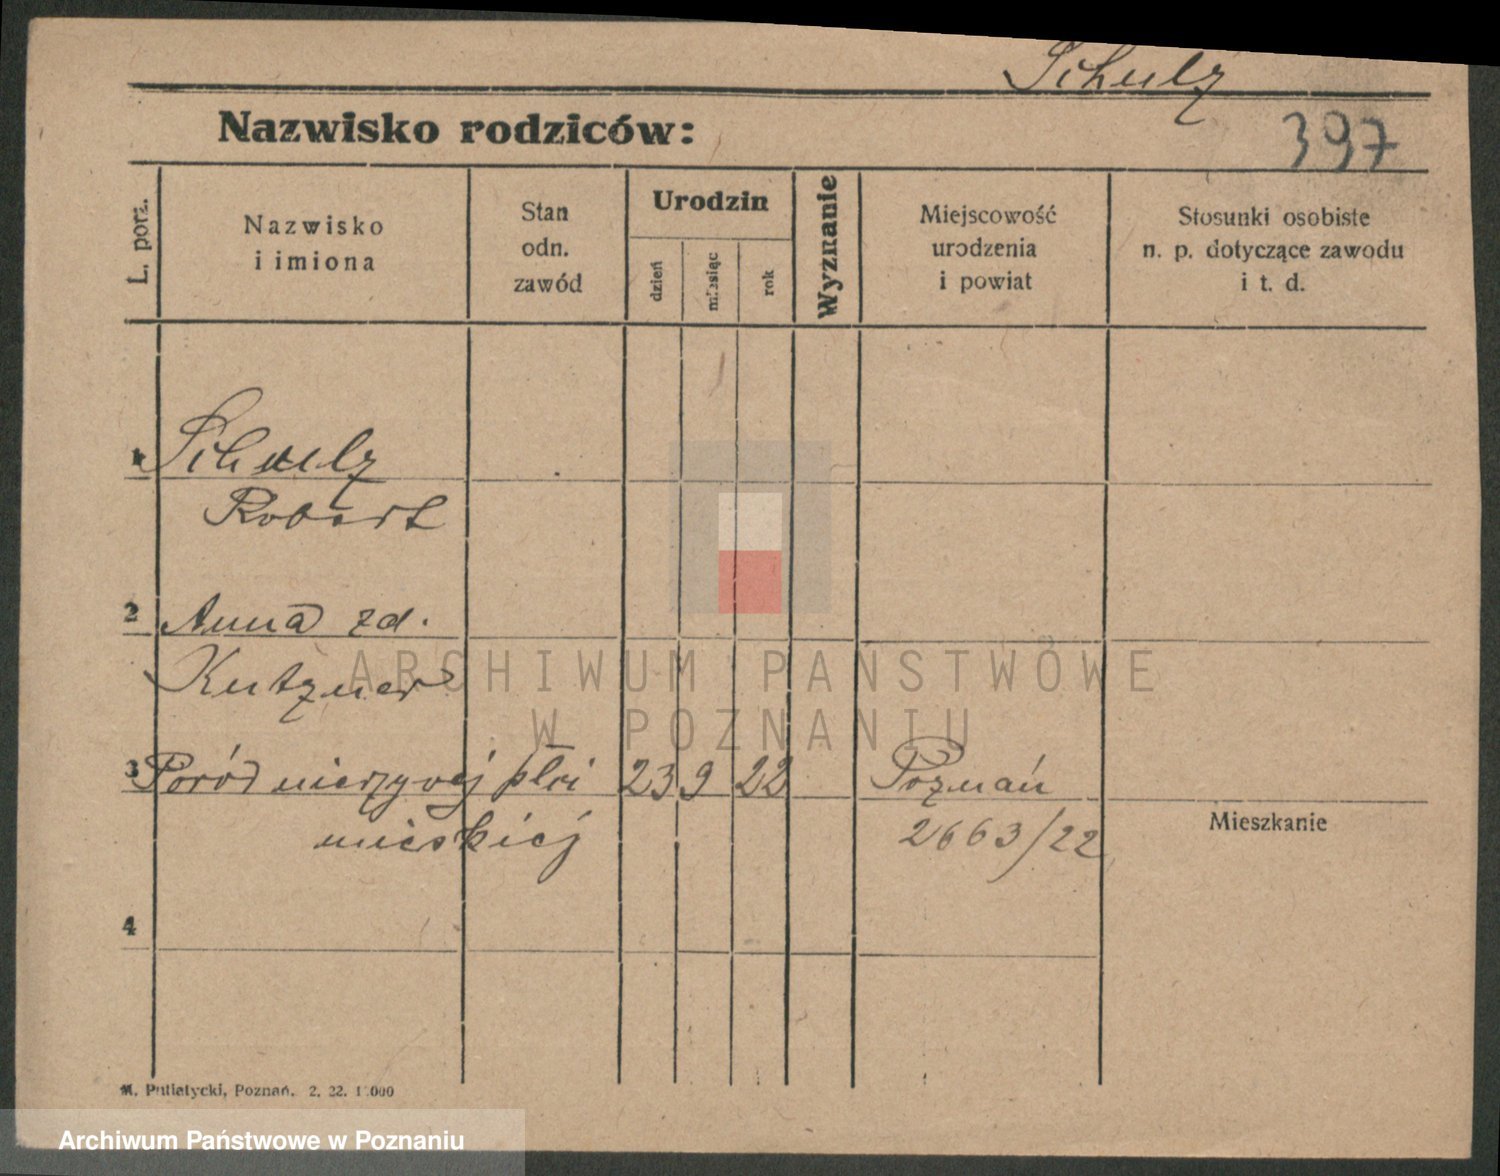 Schulz
Nazwisko rodziców:
397
L. porz.
Nazwisko
i imiona
Stan
odn.
zawód
Urodzin
dzień
miesiąc
rok
Wyznanie
Miejscowość
urodzenia
i powiat
Stosunki osobiste
n. p. dotyczące zawodu
i t. d.
1 Schulz
Robert
2 Anna zd.
Kutzner
ARCHIWUM PAŃSTWOWE
W POZNANIU
3 Poród nieżywej płci 23 9 22 Poznań
męskiej 2663/22
Mieszkanie
4
M. Putiatycki, Poznań. 2. 22.
Archiwum Państwowe w Poznaniu